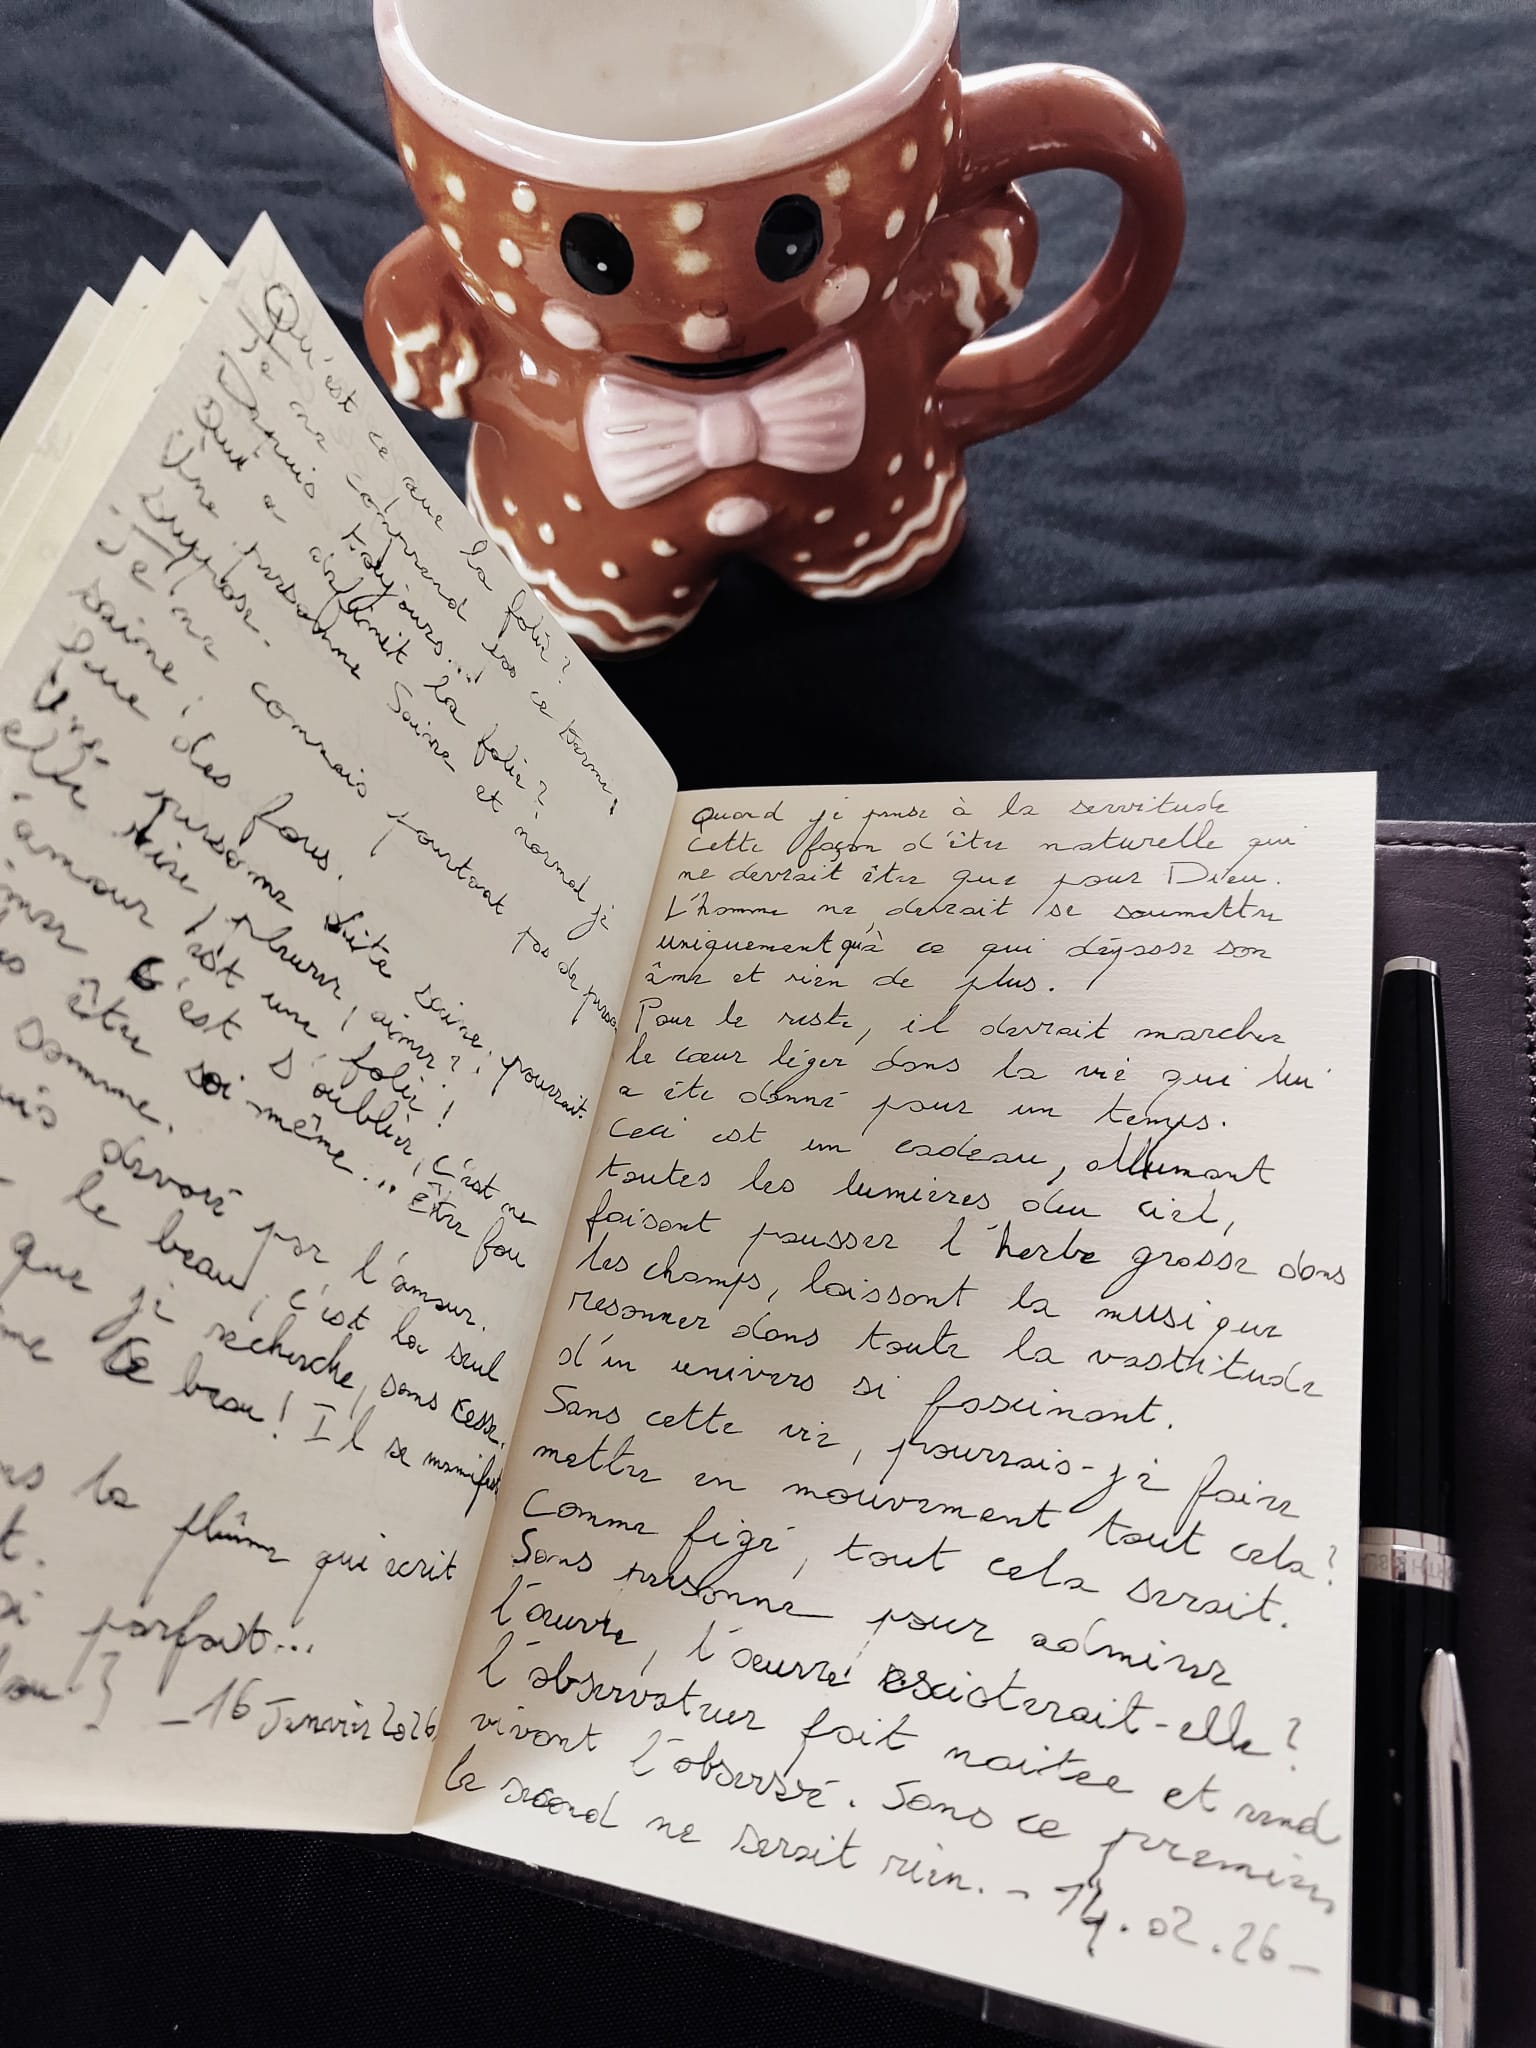 Qu'est ce que la folie?
Je ne comprend pas ce terme,
Depuis toujours...
Qui a définit la folie?
Une personne Saine et normal je
suppose.
Je ne connais pourtant pas de
saine;
Que des fous.
Une personne dite saine, pourrait-
elle rire, pleurer, aimer?
L'amour est une folie!
c'est s'oublier, c'est ne
être soi-même... Être fou
somme.
devoré par l'amour.
le beau, c'est la seul
que je recherche, sans cesse.
Ce beau! Il se manifest
la plûme qui écrit
parfait...
- 16 Janvier 2026
Quand je pense à la servitude
cette façon d'être naturelle qui
ne devrait être que pour Dieu.
L'homme ne devrait se soumettre
uniquement qu'à ce qui dépasse son
âme et rien de plus.
Pour le reste, il devrait marcher
le cœur léger dans la vie qui lui
a été donné pour un temps.
Ceci est un cadeau, allumant
toutes les lumières du ciel,
faisant pousser l'herbe grasse dans
les champs, laissant la musique
resonner dans toute la vastitude
d'un univers si fascinant.
Sans cette vie, pourrais-je faire
mettre en mouvement tout cela?
Comme figé, tout cela serait.
Sans personne pour admirer
l'œuvre, l'œuvre existerait-elle?
l'observateur fait naitre et rend
vivant l'observé. Sans ce premier
le second ne serait rien. - 14.02.26 -